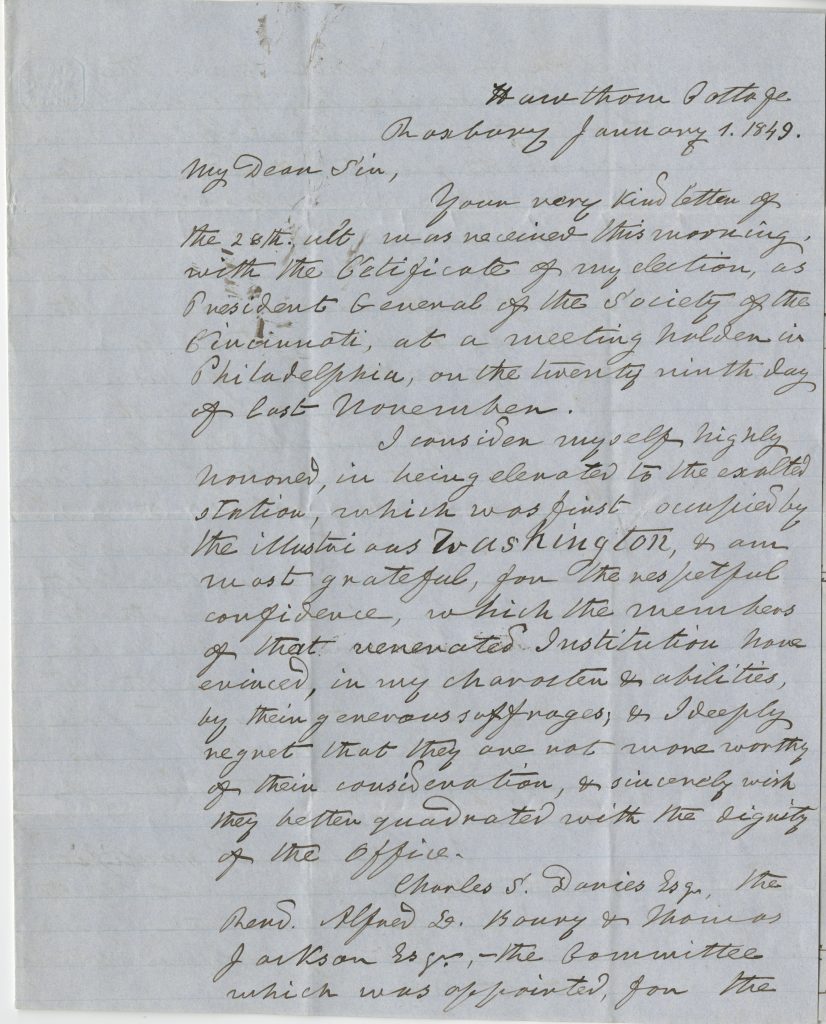 Hawthorn Cottage
Roxbury January 1. 1849.
My Dear Sir,
Your very kind letter of
the 28th. ult was received this morning,
with the Cetificate of my election, as
President General of the Society of the
Cincinnati, at a meeting holden in
Philadelphia, on the twenty ninth day
of last November.
I consider myself highly
honored, in being elevated to the exalted
station, which was first occupied by
the illustrious Washington, & am
most grateful, for the respetful
confidence, which the members
of that venerated Institution have
evinced, in my character & abilities,
by their generous suffrages; & I deeply
regret that they are not more worthy
of their consideration, & sincerely wish
they better quadrated with the dignity
of the Office.
Charles S. Davies Esqr, the
Revd. Alfred L. Baury & Thomas
Jackson Esqr, - the Committee
which was appointed, for the